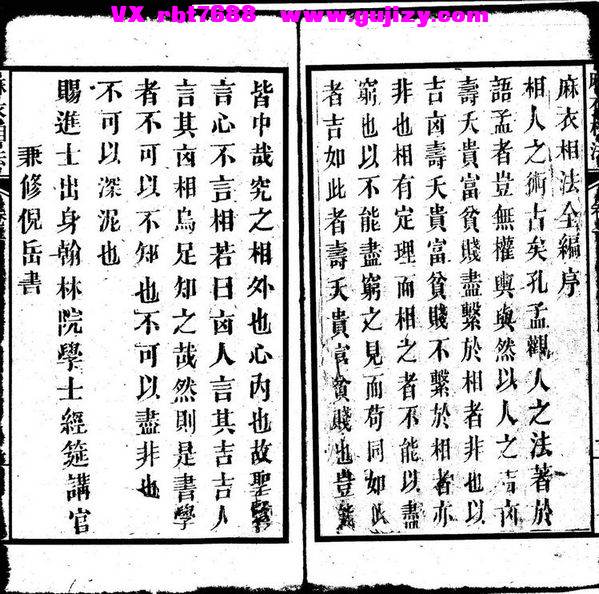 VX rbt7688 www.gujizy.com
麻衣相法全編序
相人之術古矣孔孟觀人之法著於
語孟者豈無權輿與然以人之吉凶
壽夭貴富貧賤盡繫於相者非也以
吉凶壽夭貴富貧賤不繫於相者亦
非也相有定理而相之者不能以盡
窮也以不能盡窮之見而苟同如此
者吉如此者壽夭貴富貧賤也豈能
皆中哉究之相外也心內也故聖賢
言心不言相若曰凶人言其吉吉人
言其凶相烏足知之哉然則是書學
者不可以不知也不可以盡非也
不可以深泥也
賜進士出身翰林院學士經筵講官
兼修倪岳書